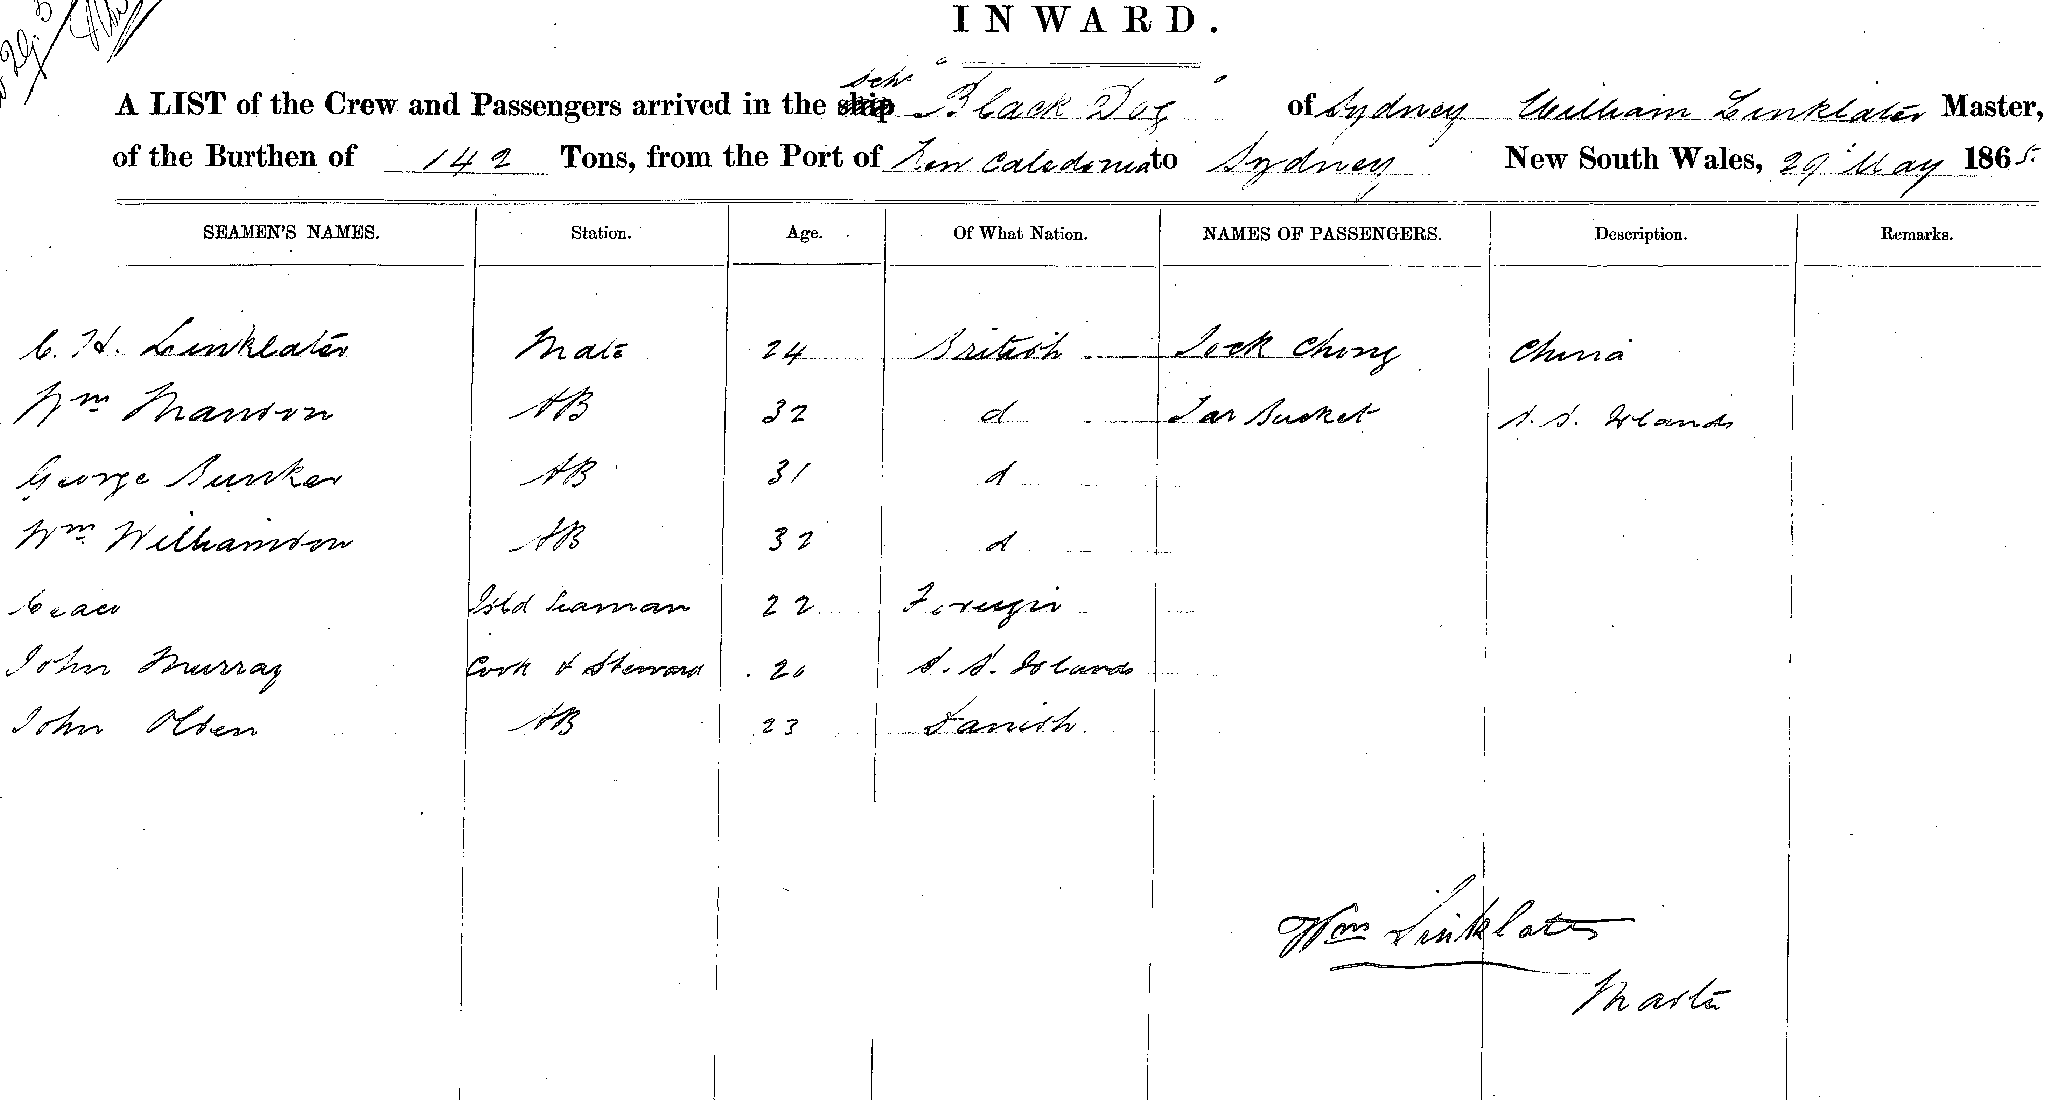 INWARD.
A LIST of the Crew and Passengers arrived in the ship Schr "Black Dog" of Sydney William Linklater Master,
of the Burthen of 142 Tons, from the Port of New Caledonia to Sydney New South Wales, 29 May 1865.
SEAMEN'S NAMES. Station. Age. Of What Nation. NAMES OF PASSENGERS. Description. Remarks.
C. H. Linklater Mate 24 British Chong China
Wm Manson AB 32 d Tar Bucket S. S. Islands
George Bunker AB 31 d
Wm Williamson AB 32 d
Seaman 22 Foreign
John Murray Cook & Steward 20 S. S. Islands
John Olsen AB 23 Danish
Wm Linklater
Master